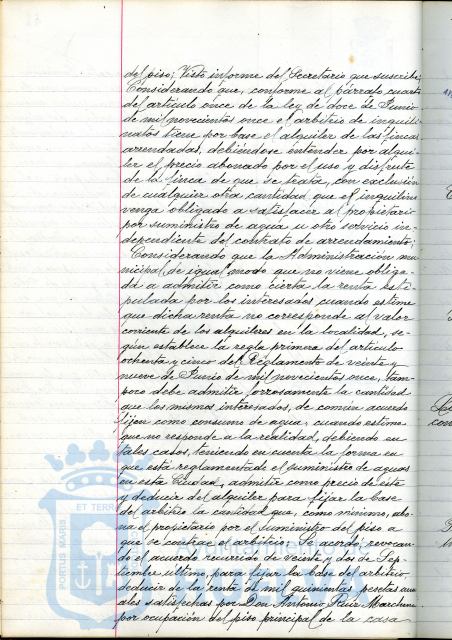 del piso; Visto informe del Secretario que suscribe;
Considerando que, conforme al párrafo cuarto
del artículo once de la ley de doce de Junio
de mil novecientos once el arbitrio de inquili
natos tiene por base el alquiler de las fincas
arrendadas, debiéndose entender por alqui-
ler el precio abonado por el uso y disfrute
de la finca de que se trata, con exclusión
de cualquier otra cantidad que el inquilino
venga obligado a satisfacer al propietario
por suministro de agua u otro servicio in-
dependiente del contrato de arrendamiento;
Considerando que la Administración mu
nicipal de igual modo que no viene obliga-
da a admitir como cierta la renta esti-
pulada por los interesados cuando estime
que dicha renta no corresponde al valor
corriente de los alquileres en la localidad, se-
gún establece la regla primera del artículo
ochenta y cinco del Reglamento de veinte y
nueve de Junio de mil novecientos once, tam-
poco debe admitir forzosamente la cantidad
que los mismos interesados, de común acuerdo
fijen como consumo de agua, cuando estime
que no responde a la realidad, debiendo en
tales casos, teniendo en cuenta la forma en
que está reglamentado el suministro de aguas
en esta Ciudad, admitir como precio de éste
y deducir del alquiler para fijar la base
del arbitrio la cantidad que, como mínimo, abo-
na el propietario por el suministro del piso a
que se contrae el arbitrio. Se acordó, revocan-
do el acuerdo recurrido de veinte y dos de Sep-
tiembre último, para fijar la base del arbitrio
deducir de la renta de mil quinientas pesetas anu
ales satisfechas por Don Antonio Ruiz
por ocupación del piso principal de la casa
ET TERR
PORTUS MARIS